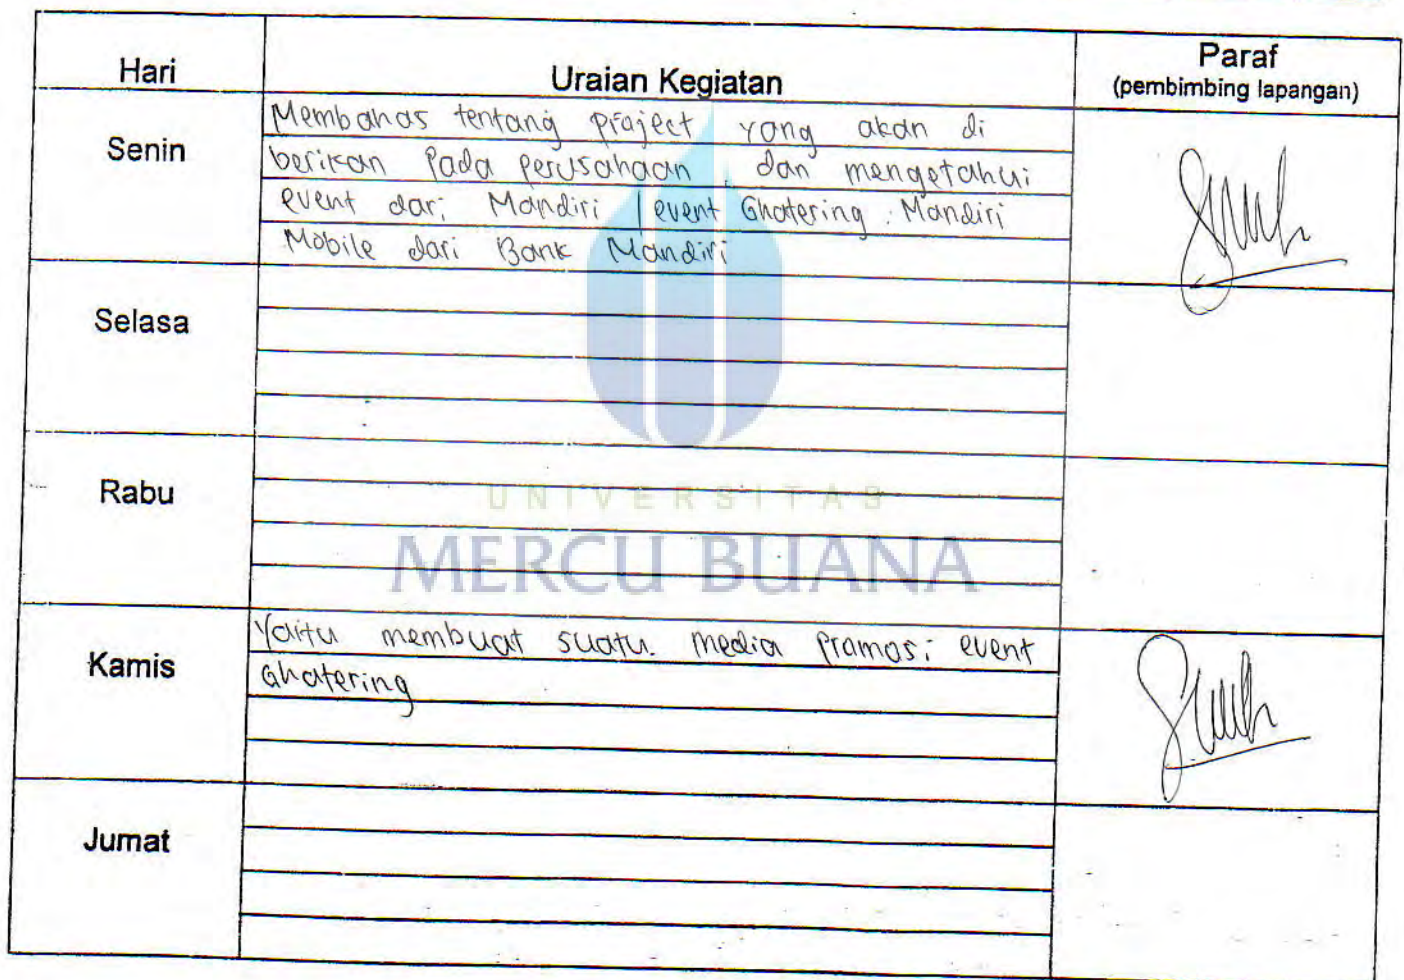 Hari Uraian Kegiatan Paraf
(pembimbing lapangan)
Senin
Membahas tentang project yang akan di
berikan Pada perusahaan, dan mengetahui
event dari Mandiri / event Ghatering Mandiri
Mobile dari Bank Mandiri
Selasa
Rabu
UNIVERSITAS
MERCU BUANA
Kamis
Yaitu membuat suatu. media promosi event
Ghatering
Jumat